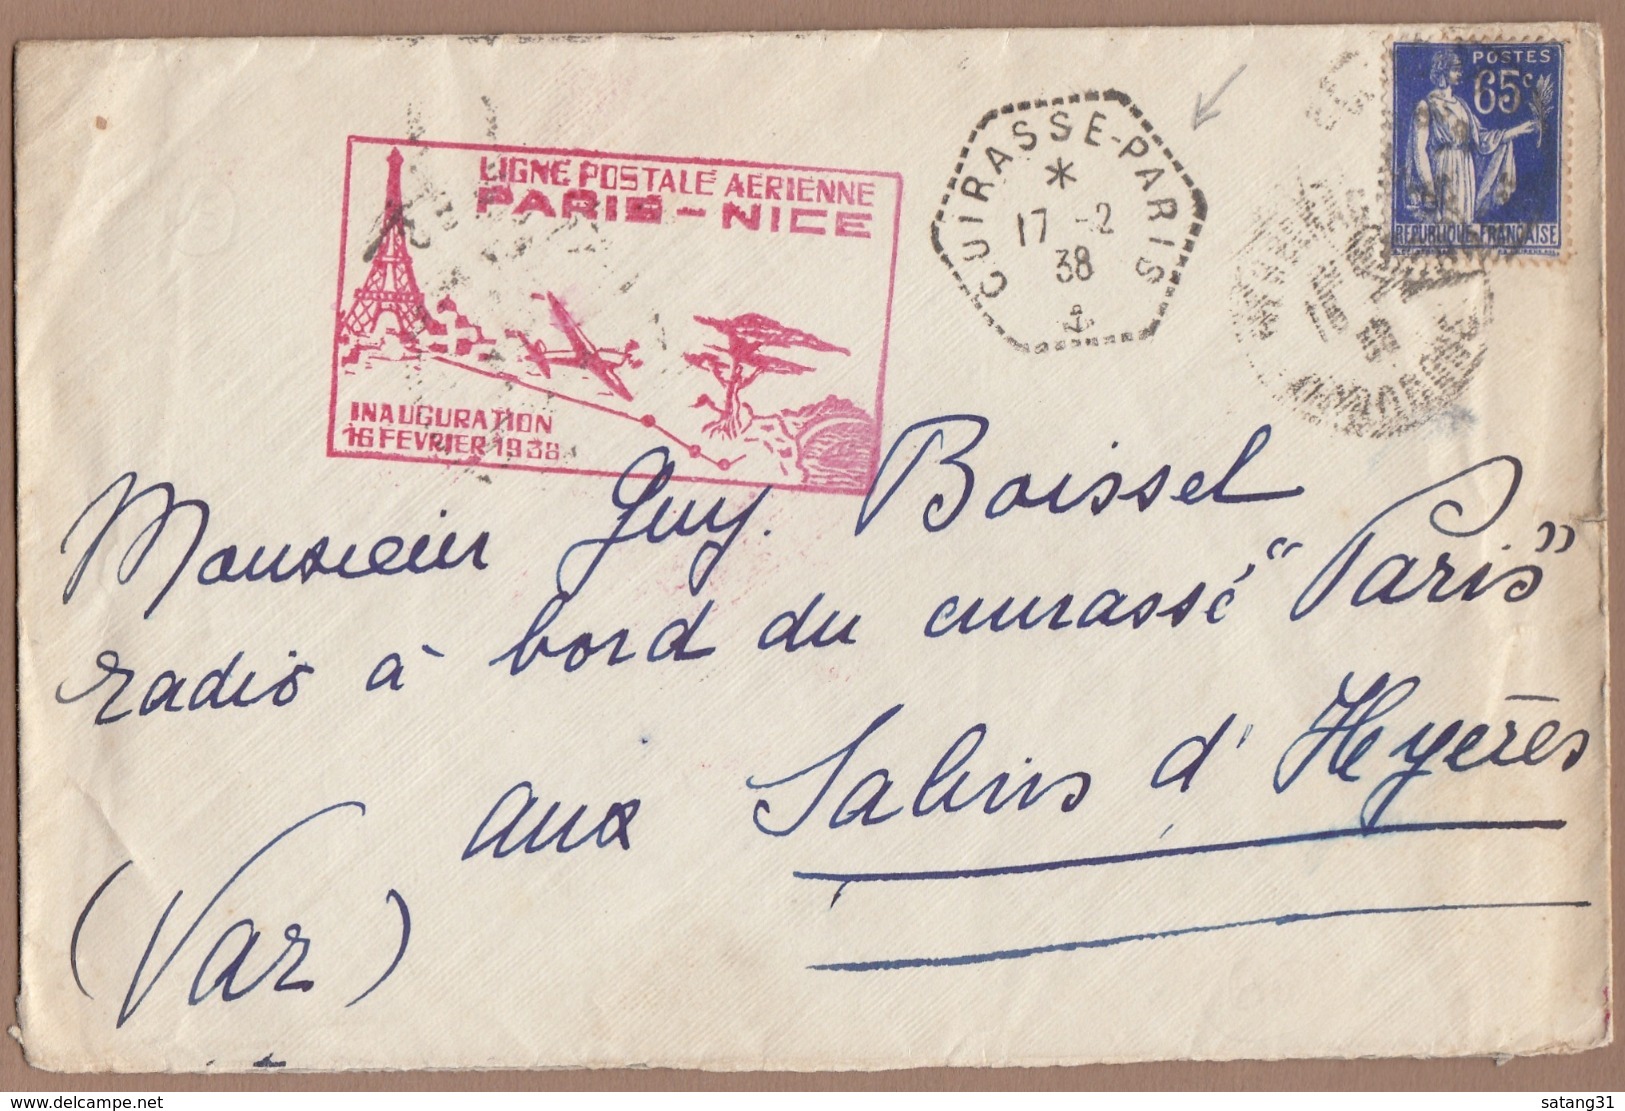 LIGNE POSTALE AERIENNE
PARIS - NICE
INAUGURATION
16 FEVRIER 1938
CUIRASSE-PARIS
*
17 -2
38
POSTES
65c
REPUBLIQUE FRANÇAISE
Monsieur Guy. Boissel
radio à bord du cuirassé "Paris"
aux Salins d'Hyères
(Var)
www.delcampe.com
satang31